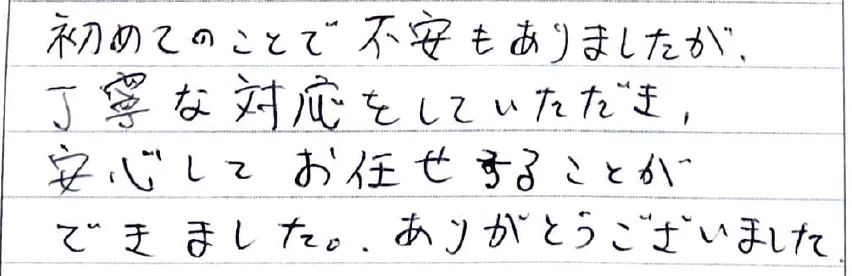 初めてのことで不安もありましたが、
丁寧な対応をしていただき,
安心してお任せすることが
できました。. ありがとうございました.